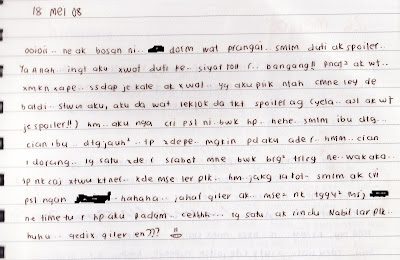 18 MEI 08
ooioii.. ne ak bosan ni.. dotm wat prangai.. smlm duti ak spoiler..
Ya Allah.. ingt aku xwat duti ke.. siyot toll r.. bangang!! pnat² ak wt..
xmkn xape.. ssdap je kate ak xwat.. yg aku plik ntah cmne ley de
baldi.. stwu aku, aku da wat lekjok da tkt spoiler ag (yela.. asl ak wt
je spoiler!!) hm.. aku nga cri psl ni bwk hp.. hehe.. smlm ibu dtg..
cian ibu.. dtg jauh².. tp xdepe.. makin pd aku ade r.. hmm.. cian
i dorang.. lg satu xde r srabot mne bwk brg² tricg ne.. wakaka..
lp nk caj xtwu ktner.. xde mse ler plk.. hm.. jakg la tol.. smlm ak cri
psl ngan .. hahaha.. jahat giler ak.. mse² nk tggy² msj
ne time tu r hp aku padam.. cekhhh... lg satu.. ak rindu Nabil lar plk..
huhu.. gedix giler en???